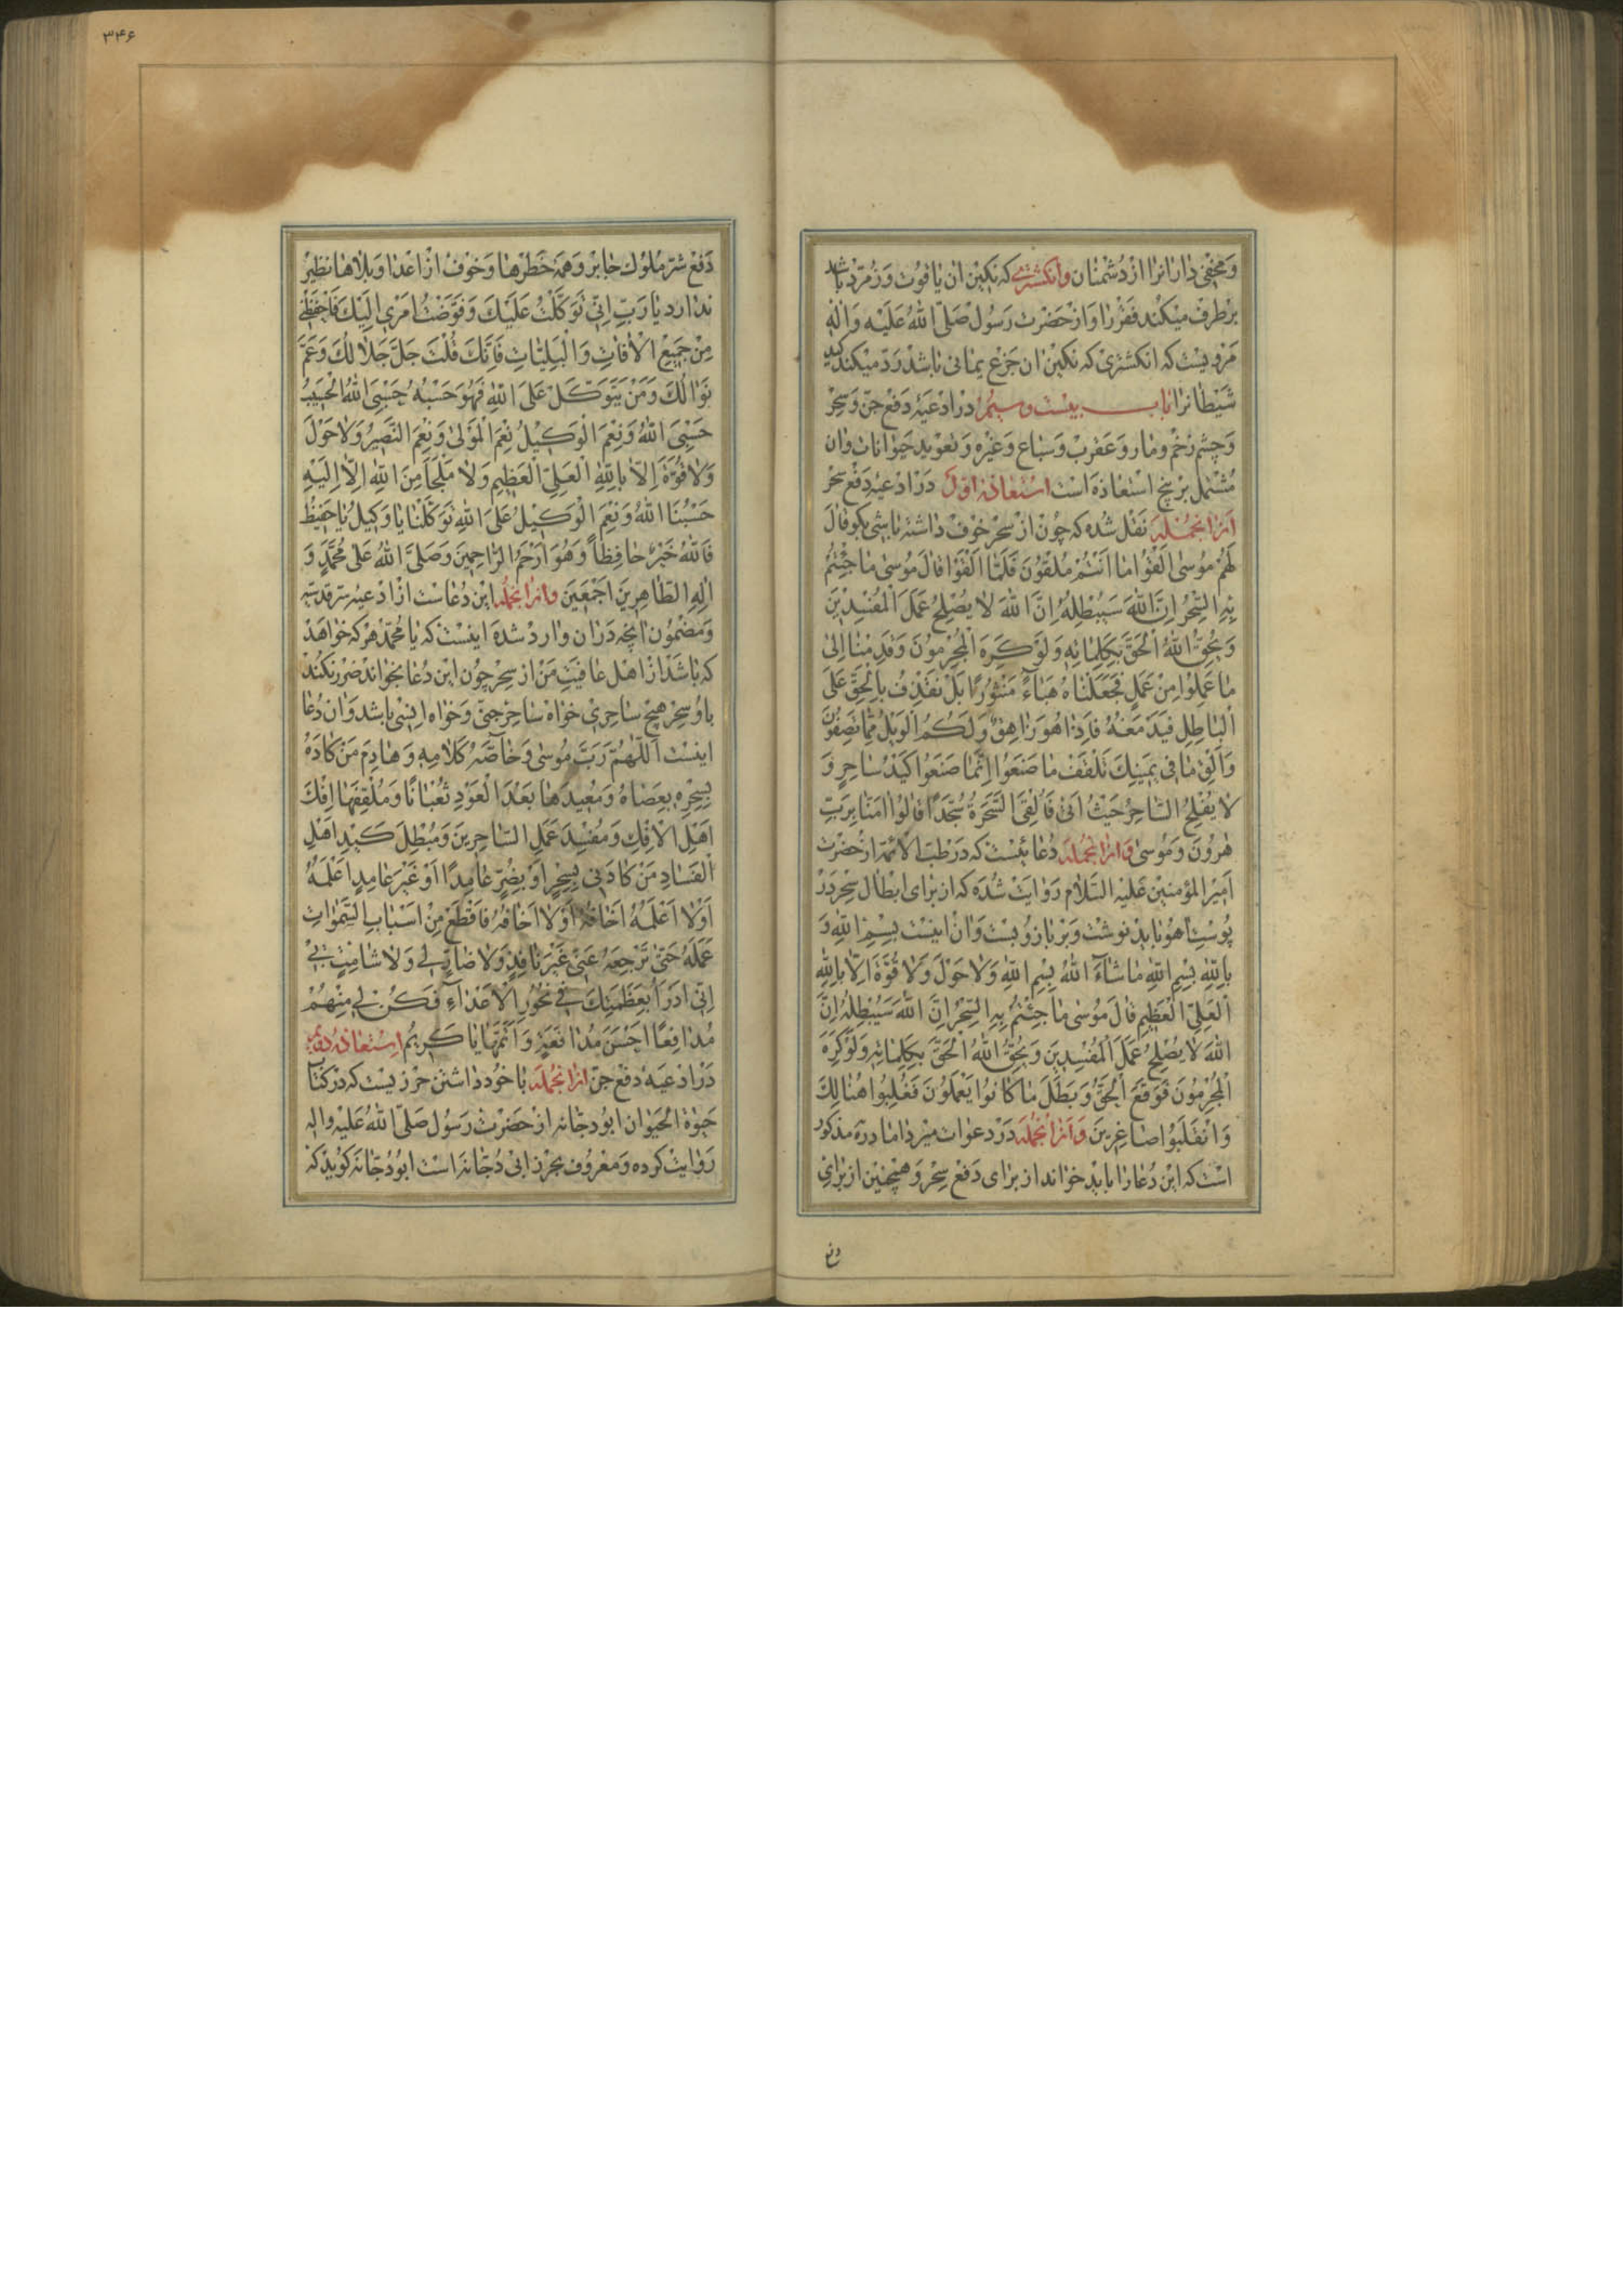 و مخفی دار انرا از دشمنان وانکشتری که نکین ان یاقوت و زمرد باشد
برطرف میکند فقر را و از حضرت رسول صلی الله علیه و اله
مرویست که انکشتری که نکین ان جزع یمانی باشد رد میکند کید
شیطانرا باب بیست و سیم در ادعیهٔ دفع جن و سحر
و چشم زخم و مار و عقرب و سباع و غیره و تعوید حیوانات و ان
مشتمل بر پنج استعاذه است استعاذهٔ اول در ادعیهٔ دفع سحر
ازانجمله نقل شده که چون از سحر خوف داشته باشی بکو قال
لهم موسی القوا ما انتم ملقون فلما القوا قال موسی ما جئتم
به السحر ان الله سیبطله ان الله لا یصلح عمل المفسدین
و یحق الله الحق بکلماته ولو کره المجرمون وقدمنا الی
ما عملوا من عمل فجعلناه هباء منثورا بل نقذف بالحق علی
الباطل فیدمغه فاذا هو زاهق ولکم الویل مما تصفون
و الق ما فی یمینک تلقف ما صنعوا انما صنعوا کید ساحر و
لا یفلح الساحر حیث اتی فالقی السحرة سجدا قالوا امنا برب
هرون و موسی و ازانجمله دعائیست که در طب الائمه از حضرت
امیر المؤمنین علیه السلام روایت شده که از برای ابطال سحر در
پوست اهو باید نوشت و بر بازو بست و ان اینست بسم الله و
بالله بسم الله ما شاء الله بسم الله ولا حول ولا قوة الا بالله
العلی العظیم قال موسی ما جئتم به السحر ان الله سیبطله ان
الله لا یصلح عمل المفسدین و یحق الله الحق بکلماته ولو کره
المجرمون فوقع الحق و بطل ما کانوا یعملون فغلبوا هنالک
و انقلبوا صاغرین و ازانجمله در دعوات میرداماد ره مذکور
است که این دعا را باید خواند از برای دفع سحر و همچنین از برای
دفع
۳۴۶
دفع شر ملوک جابر و همه خطرها و خوف از اعدا و بلاها نظیر
ندارد یا رب انی توکلت علیک و فوضت امری الیک فاحفظنی
من جمیع الافات و البلیات فانک قلت جل جلالک و عم
نوالک و من یتوکل علی الله فهو حسبه حسبی الله الحسیب
حسبی الله و نعم الوکیل نعم المولی و نعم النصیر ولا حول
ولا قوة الا بالله العلی العظیم ولا ملجأ من الله الا الیه
حسبنا الله و نعم الوکیل علی الله توکلنا یا وکیل یا حفیظ
فالله خیر حافظا و هو ارحم الراحمین و صلی الله علی محمد و
اله الطاهرین اجمعین وازانجمله این دعاست از ادعیهٔ سر قدسیه
و مضمون انچه دران وارد شده اینست که یا محمد هر که خواهد
که باشد از اهل عافیت من از سحر چون این دعا بخواند ضرر نکند
باو سحر هیچ ساحری خواه ساحر جنی و خواه انسی باشد و ان دعا
اینست اللهم رب موسی و خاصه کلامه و هادم من کاده
بسحره بعصاه و معیدها بعد العود ثعبانا و ملقفها افک
اهل الافک و مفسد عمل الساحرین و مبطل کید اهل
الفساد من کادنی بسحر او بضر عامدا او غیر عامد اعلمه
او لا اعلمه اخافه او لا اخافه فاقطع من اسباب السموات
عمله حتی ترجعه عنی غیر نافذ ولا ضار لی ولا شامت بی
انی ادرأ بعظمتک فی نحور الاعداء فکن لی منهم
مدافعا احسن مدافعة و اتمها یا کریم استعاذهٔ دویم
در ادعیهٔ دفع جن ازانجمله با خود داشتن حرزیست که در کتاب
حیوة الحیوان ابودجانه از حضرت رسول صلی الله علیه واله
روایت کرده و معروف بحرز ابی دجانه است ابودجانه کوید که